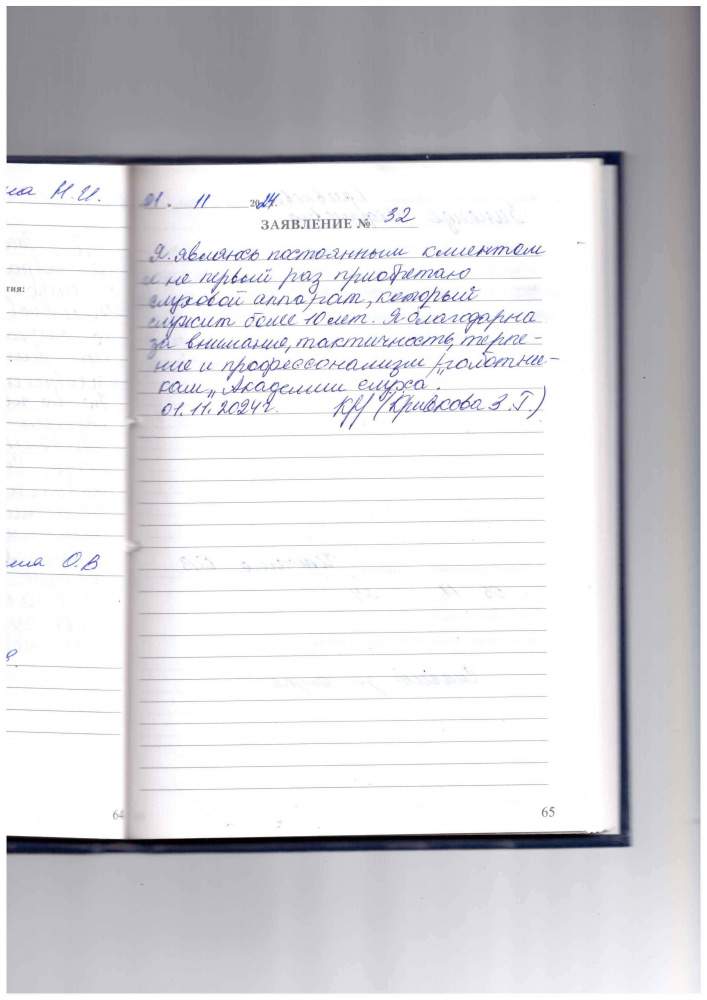 на Н.И.
тия:
на О.В
64
01. 11 2024г.
ЗАЯВЛЕНИЕ № 32
Я являюсь постоянным клиентом
и не первый раз приобретаю
слуховой аппарат, который
служит более 10 лет. Я благодарна
за внимание, тактичность, терпе-
ние и профессонализм
кам „Академии слуха.
01.11.2024г. (Кривкова З.Г.)
65